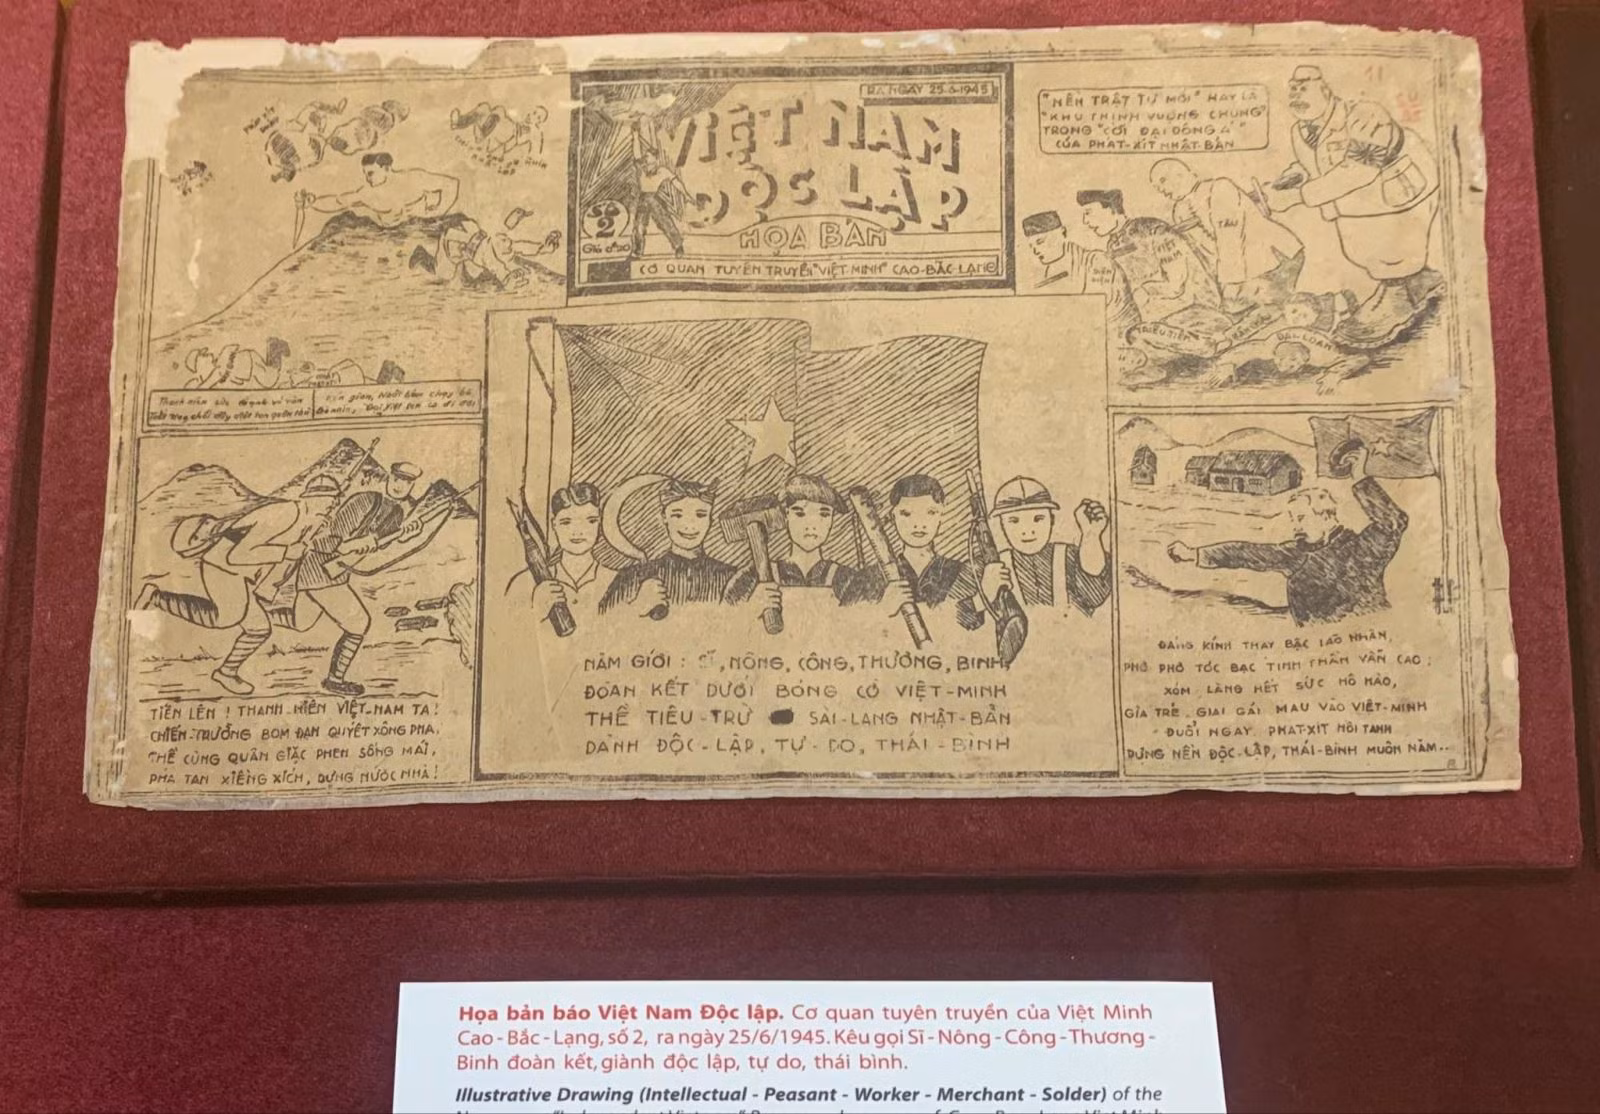 RA NGÀY 25-6-1945
VIỆT NAM
ĐỘC LẬP
SỐ
2
HỌA BẢN
CƠ QUAN TUYÊN TRUYỀN "VIỆT MINH" CAO-BẮC-LẠNG
"NỀN TRẬT TỰ MỚI" HAY LÀ
"KHU THỊNH VƯỢNG CHUNG"
TRONG "CÕI ĐẠI ĐÔNG Á"
CỦA PHÁT-XÍT NHẬT-BẢN
TẦU
VIỆT
NAM
TRIỀU TIÊN
ĐÀI-LOAN
NĂM GIỚI : SĨ, NÔNG, CÔNG, THƯƠNG, BINH,
ĐOÀN KẾT DƯỚI BÓNG CỜ VIỆT-MINH
THỀ TIÊU-TRỪ SÀI-LANG NHẬT-BẢN
DÀNH ĐỘC-LẬP, TỰ-DO, THÁI-BÌNH
TIẾN LÊN ! THANH-NIÊN VIỆT-NAM TA !
CHIẾN-TRƯỜNG BOM ĐẠN QUYẾT XÔNG PHA,
THỀ CÙNG QUÂN GIẶC PHEN SỐNG MÁI,
PHÁ TAN XIỀNG XÍCH, DỰNG NƯỚC NHÀ !
ĐÁNG KÍNH THAY BẬC LÃO NHÂN,
PHƠ PHƠ TÓC BẠC TINH THẦN VẪN CAO ;
XÓM LÀNG HẾT SỨC HÔ HÀO,
GIÀ TRẺ GIAI GÁI MAU VÀO VIỆT-MINH
ĐUỔI NGAY PHÁT-XÍT HÔI TANH
DỰNG NỀN ĐỘC-LẬP, THÁI-BÌNH MUÔN NĂM..
Họa bản báo Việt Nam Độc lập. Cơ quan tuyên truyền của Việt Minh
Cao - Bắc - Lạng, số 2, ra ngày 25/6/1945. Kêu gọi Sĩ - Nông - Công - Thương -
Binh đoàn kết, giành độc lập, tự do, thái bình.
Illustrative Drawing (Intellectual - Peasant - Worker - Merchant - Solder) of the